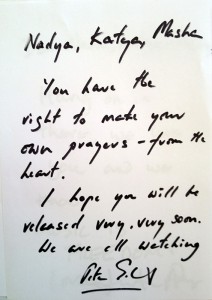 Nadya, Katya, Masha
You have the
right to make your
own prayers – from the
heart.
I hope you will be
released very, very soon.
We are all watching